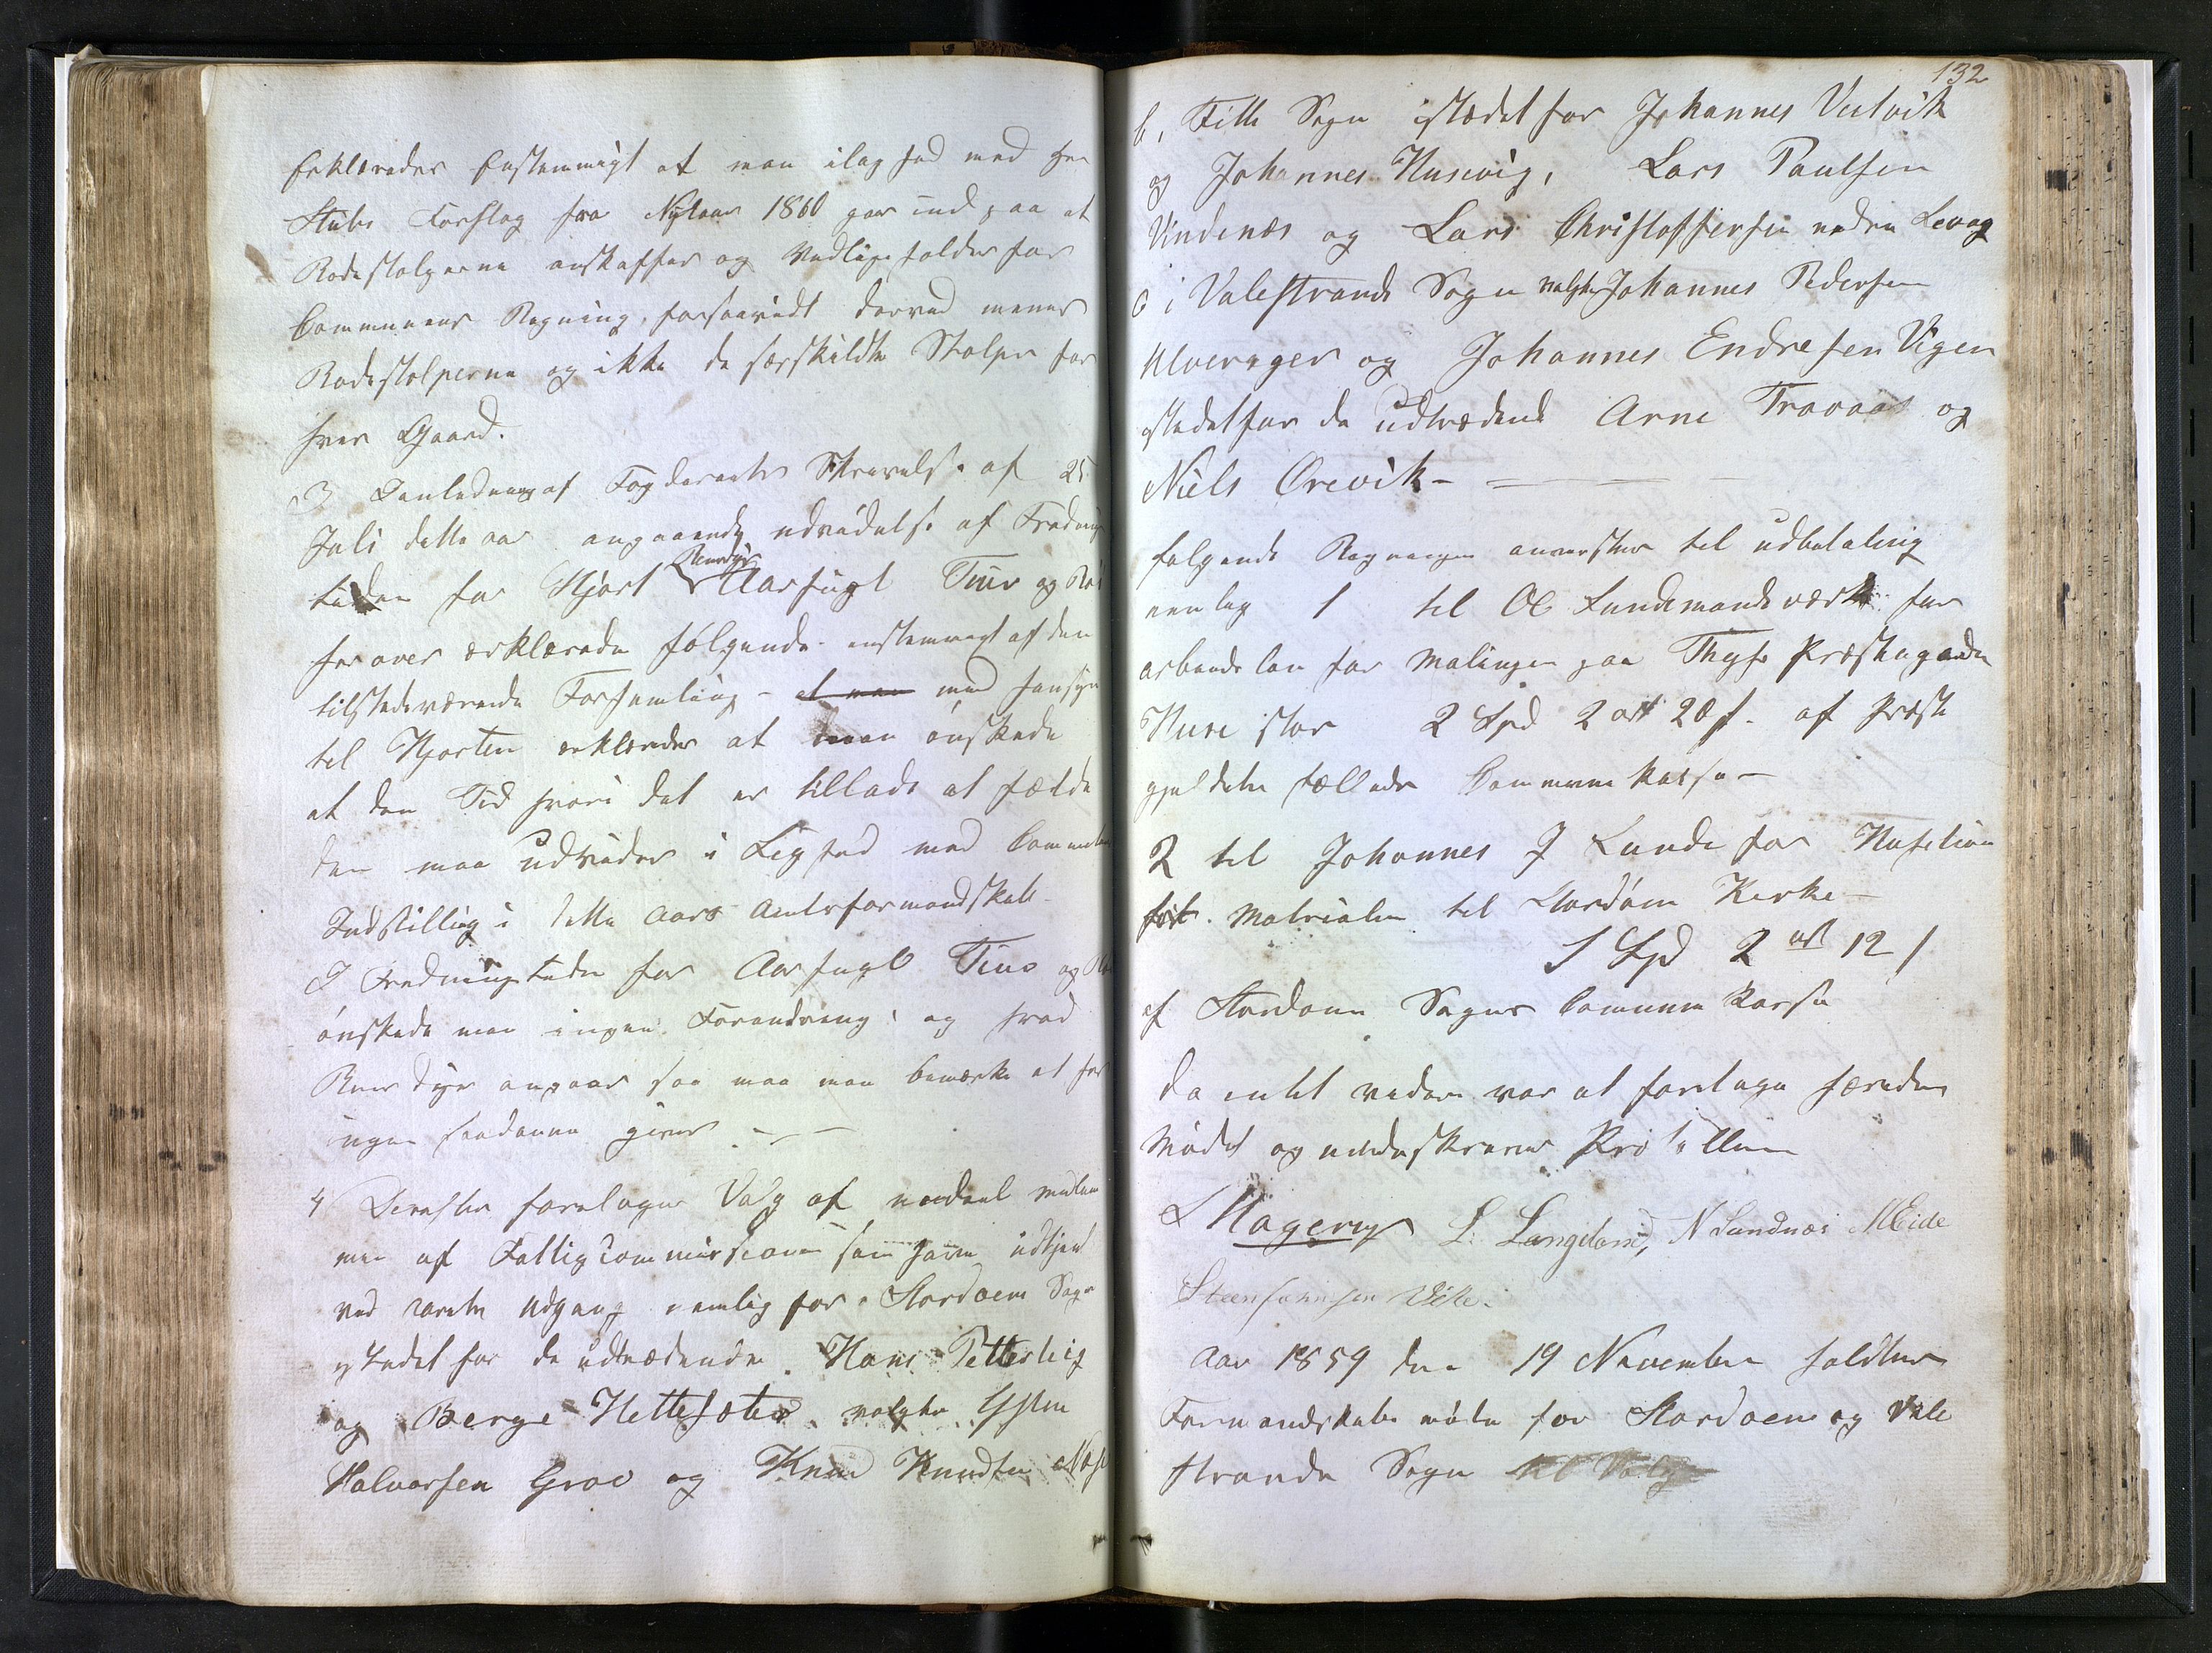 Erklæredes Enstemmigt at man ilag hed med Hr
Stubs Forslag fra Nytaar 1860 gaar ind paa at
Rodestolperne anskaffes og Vedligeholdes for
Communens Regning, forsaavidt derved menes
Rodestolperne og ikke de særskildte Stolper for
hver Gaard.
3 I anledning af Fogderiets Skrivelse af 25
Juli dette aar angaaende udvidelse af Frednings
tiden for Hjort Rensdyr Aarfugl Tiur og
her over erklærede følgende enstemmigt af den
tilstedeværende Forsamling - at man med hensyn
til Hjorten erklæredes at man ønskede
at den Tid hvori det er tilladt at fælde
den maa udvides i Lighed med Committeens
Indstilling i dette Aars Amtsformandskab -
I Fredningstiden for Aarfugl Tiur og
ønskede man ingen Forandring, og hvad
Rensdyr angaar saa maa man bemærke at her
ingen saadanne gives -
4 Derefter foretoges Valg af nye
men af Fattigcommissionen som have udtjent
ved aarets Udgang nemlig for Stordøen Sogn
istedet for de udtrædende Hans Petterteig
og Berge Hettesæter valgtes
Halvorsen Groe og Knud Knudsen
132
b, Fitie Sogn istædet for Johannes Vestvik
og Johannes Husevig, Lars Paulsen
Vindenæs og Lars Christoffersen nedre Levag
c i Valestrands Sogn valgtes Johannes Pedersen
Ulverager og Johannes Endresen Vigen
istedetfor de udtrædende Arne Trovaas og
Niels Ørevik -
følgende Regninger anvistes til udbetaling
nemlig 1 til Ol Lundemandsværk for
arbeidsløn for Malingen paa Thysse Præstegaards
Huse stor 2 Spd 2 ort 20 s. af Præste
gjeldets fælleds Commune Kasse -
2 til Johannes J Lunde for
Matrialer til Stordøen Kirke -
1 Spd 2 ort 12 s
af Stordøen Sogns Commune Kasse
Da intet videre var at foretage hævedes
Mødet og underskreves Protollen
L Magerup L. Langeland, N Sandnæs MEide
Steen Johnsen Vike.
Aar 1859 den 19 November holdtes
Formandskabs møde for Stordøen og Vale
strands Sogn til Valg